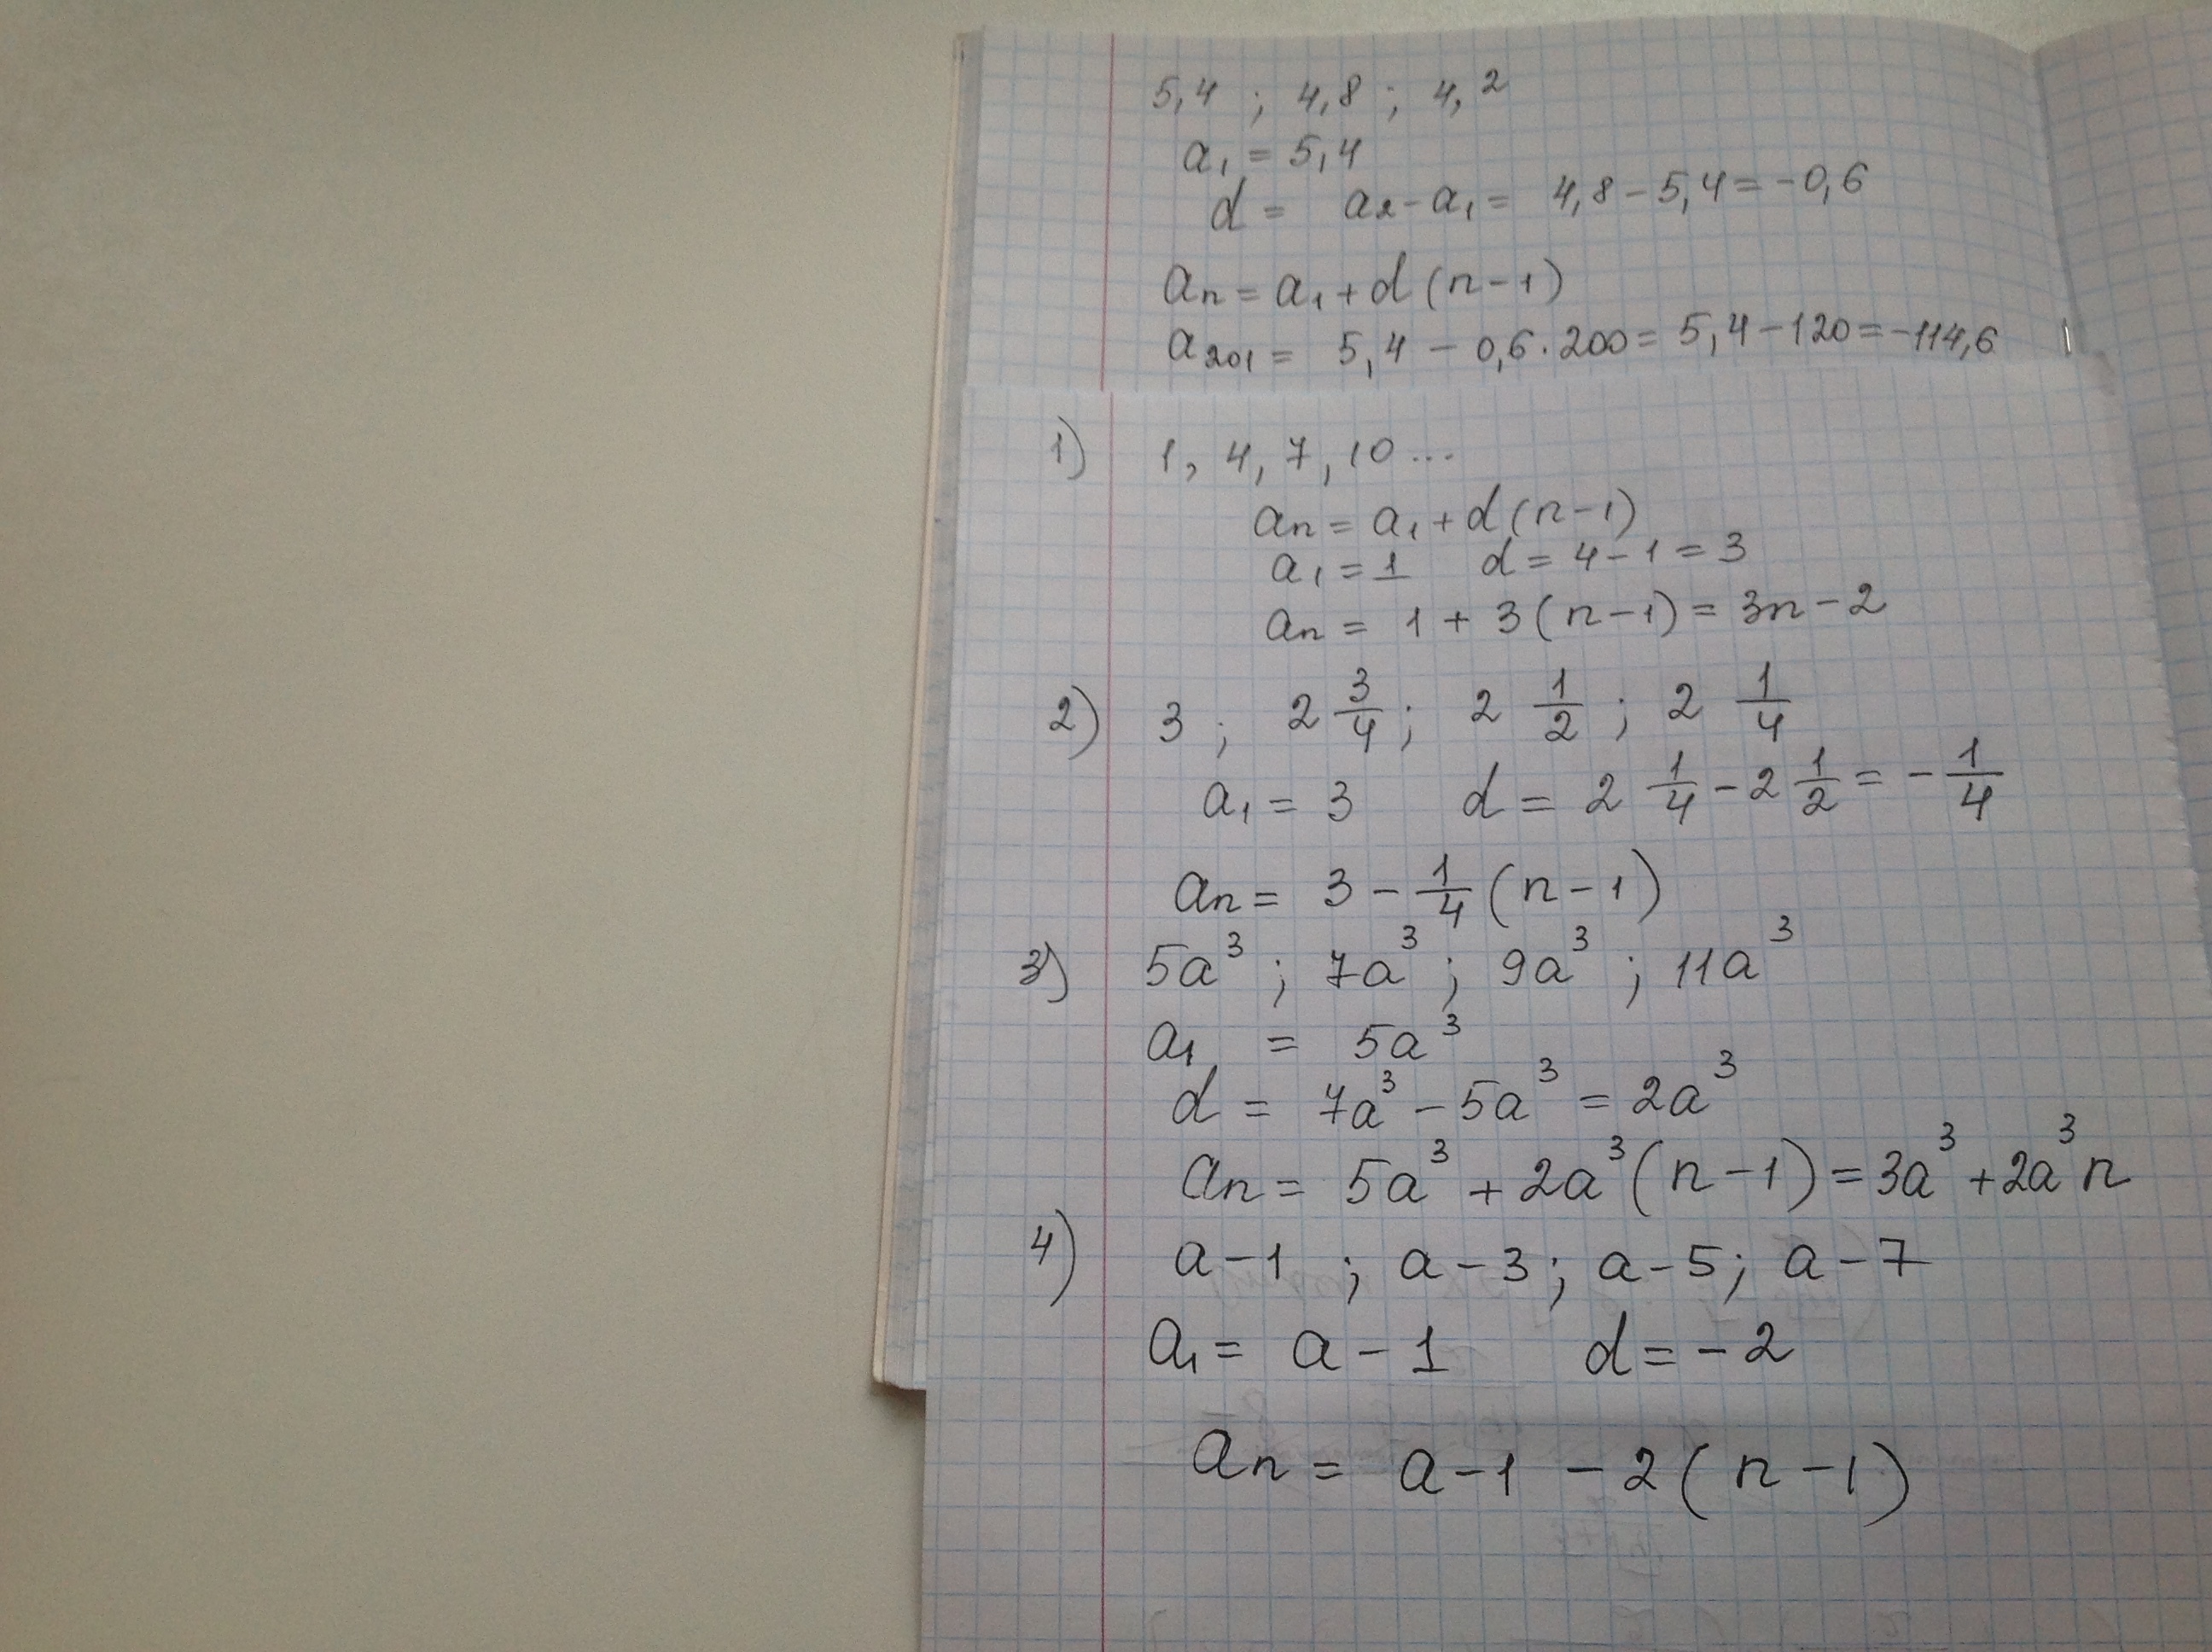 5,4 ; 4,8 ; 4,2
a₁ = 5,4
d = a₂ - a₁ = 4,8 - 5,4 = -0,6
aₙ = a₁ + d (n - 1)
a₂₀₁ = 5,4 - 0,6 · 200 = 5,4 - 120 = -114,6
1) 1, 4, 7, 10 ...
aₙ = a₁ + d (n - 1)
a₁ = 1 d = 4 - 1 = 3
aₙ = 1 + 3 (n - 1) = 3n - 2
2) 3 ; 2 3/4 ; 2 1/2 ; 2 1/4
a₁ = 3 d = 2 1/4 - 2 1/2 = - 1/4
aₙ = 3 - 1/4 (n - 1)
3) 5a³ ; 7a³ ; 9a³ ; 11a³
a₁ = 5a³
d = 7a³ - 5a³ = 2a³
aₙ = 5a³ + 2a³ (n - 1) = 3a³ + 2a³n
4) a - 1 ; a - 3 ; a - 5 ; a - 7
a₁ = a - 1 d = - 2
aₙ = a - 1 - 2 (n - 1)